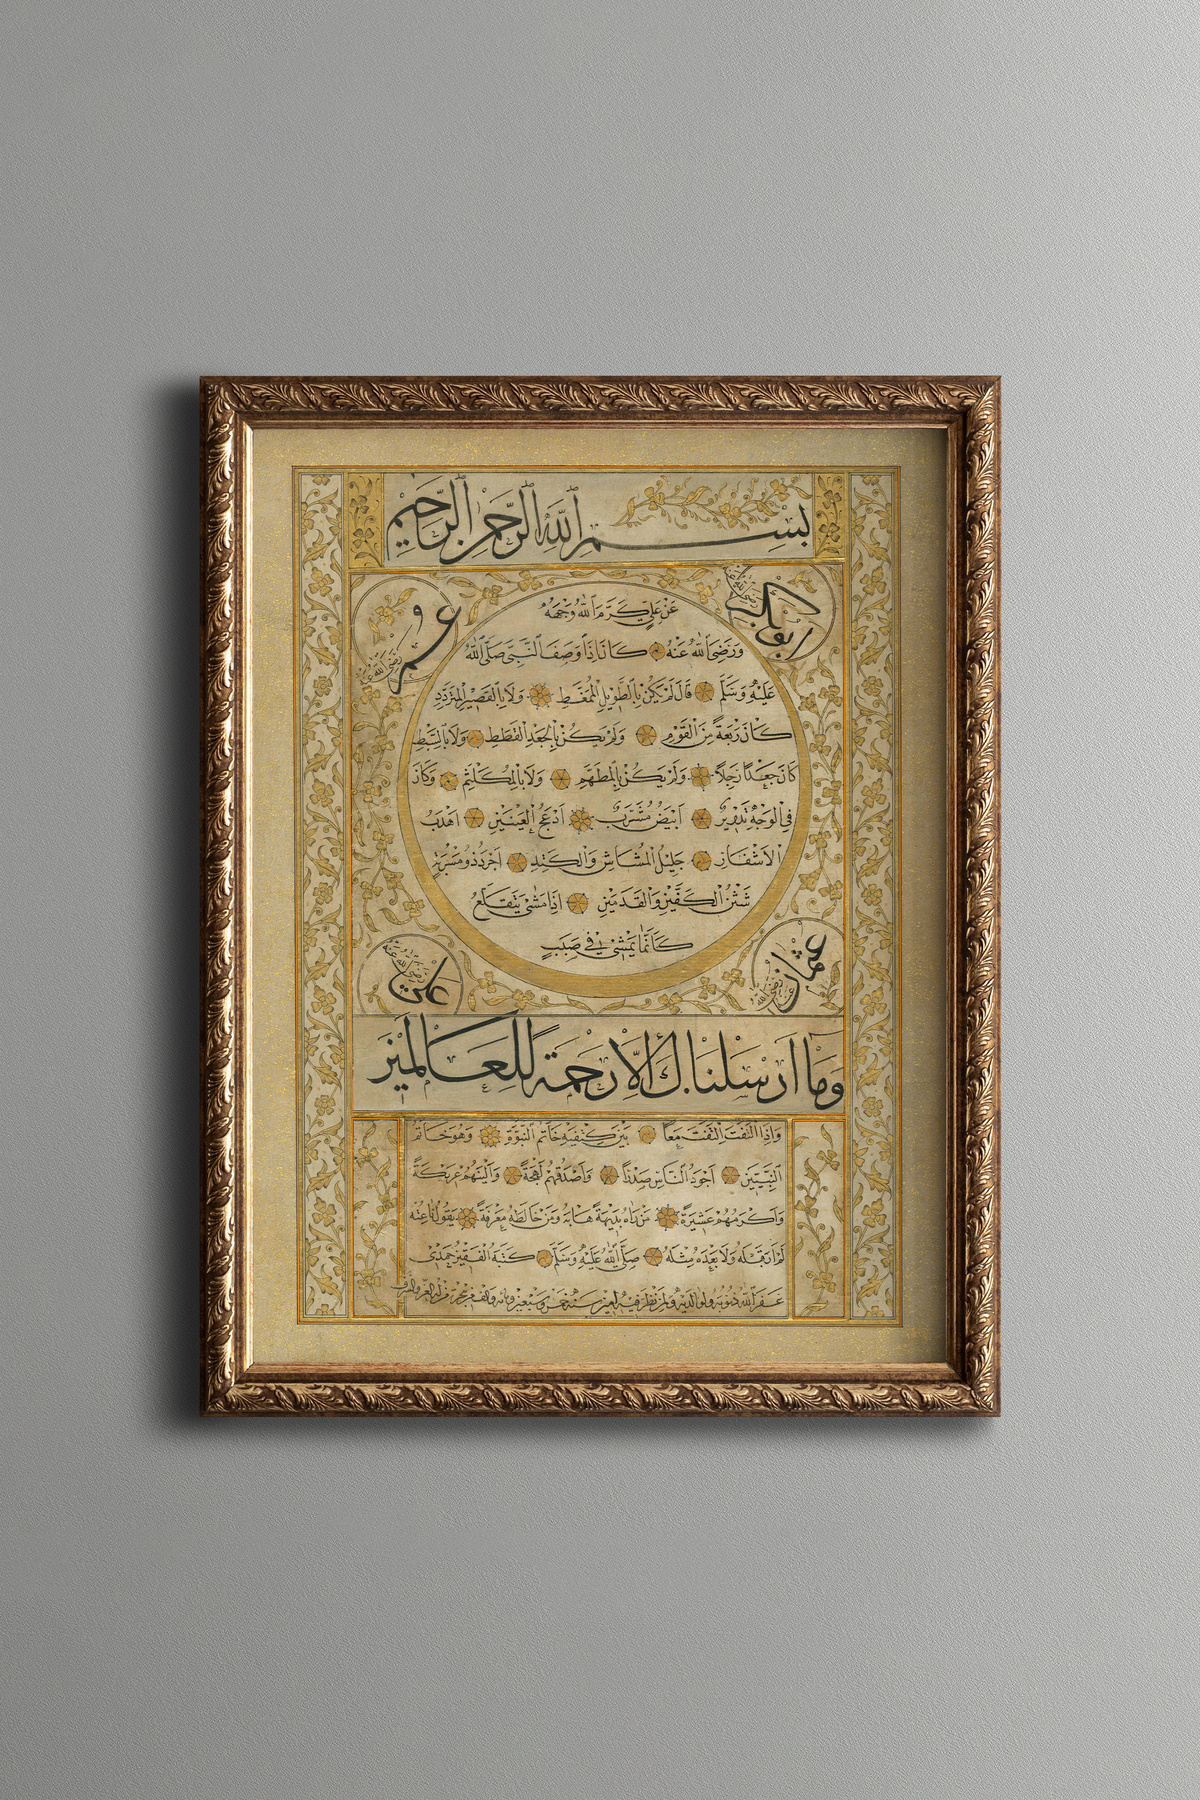 بسم الله الرحمن الرحيم
ابوبكر رضي الله عنه
عمر رضي الله عنه
عَنْ عَلِيٍّ كَرَّمَ اللهُ وَجْهَهُ
وَرَضِيَ اللهُ عَنْهُ كَانَ اِذَا وَصَفَ النَّبِيَّ صَلَّى اللهُ
عَلَيْهِ وَسَلَّمَ قَالَ لَمْ يَكُنْ بِالطَّوِيلِ الْمُمَغَّطِ وَلَا بِالْقَصِيرِ الْمُتَرَدِّدِ
كَانَ رَبْعَةً مِنَ الْقَوْمِ وَلَمْ يَكُنْ بِالْجَعْدِ الْقَطَطِ وَلَا بِالسَّبْطِ
كَانَ جَعْدًا رَجِلًا وَلَمْ يَكُنْ بِالْمُطَهَّمِ وَلَا بِالْمُكَلْثَمِ وَكَانَ
فِي الْوَجْهِ تَدْوِيرٌ اَبْيَضُ مُشْرَبٌ اَدْعَجُ الْعَيْنَيْنِ اَهْدَبُ
الْاَشْفَارِ جَلِيلُ الْمُشَاشِ وَالْكَتَدِ اَجْرَدُ ذُو مَسْرُبَةٍ
شَثْنُ الْكَفَّيْنِ وَالْقَدَمَيْنِ اِذَا مَشَى يَتَقَلَّعُ
كَاَنَّمَا يَمْشِي فِي صَبَبٍ
عثمان رضي الله عنه
علي رضي الله عنه
وَمَا اَرْسَلْنَاكَ اِلَّا رَحْمَةً لِلْعَالَمِينَ
وَاِذَا الْتَفَتَ الْتَفَتَ مَعًا بَيْنَ كَتِفَيْهِ خَاتَمُ النُّبُوَّةِ وَهُوَ خَاتَمُ
النَّبِيِّينَ اَجْوَدُ النَّاسِ صَدْرًا وَاَصْدَقُهُمْ لَهْجَةً وَاَلْيَنُهُمْ عَرِيكَةً
وَاَكْرَمُهُمْ عَشِيرَةً مَنْ رَاٰهُ بَدِيهَةً هَابَهُ وَمَنْ خَالَطَهُ مَعْرِفَةً يَقُولُ نَاعِتُهُ
لَمْ اَرَ قَبْلَهُ وَلَا بَعْدَهُ مِثْلَهُ صَلَّى اللهُ عَلَيْهِ وَسَلَّمَ كَتَبَهُ الْفَقِيرُ حَمْدِي
غفر الله ذنوبه ولوالديه ولمن نظر فيه لسنة خمس وسبعين ومائة والف من هجرة من له العز والشرف